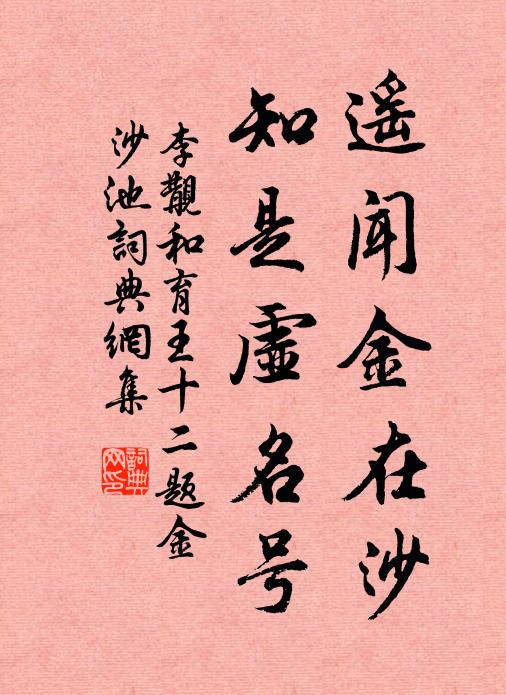 遥闻金在沙
知是虚名号
李觀和育王十二题金
沙池詞典網集
詞典网印